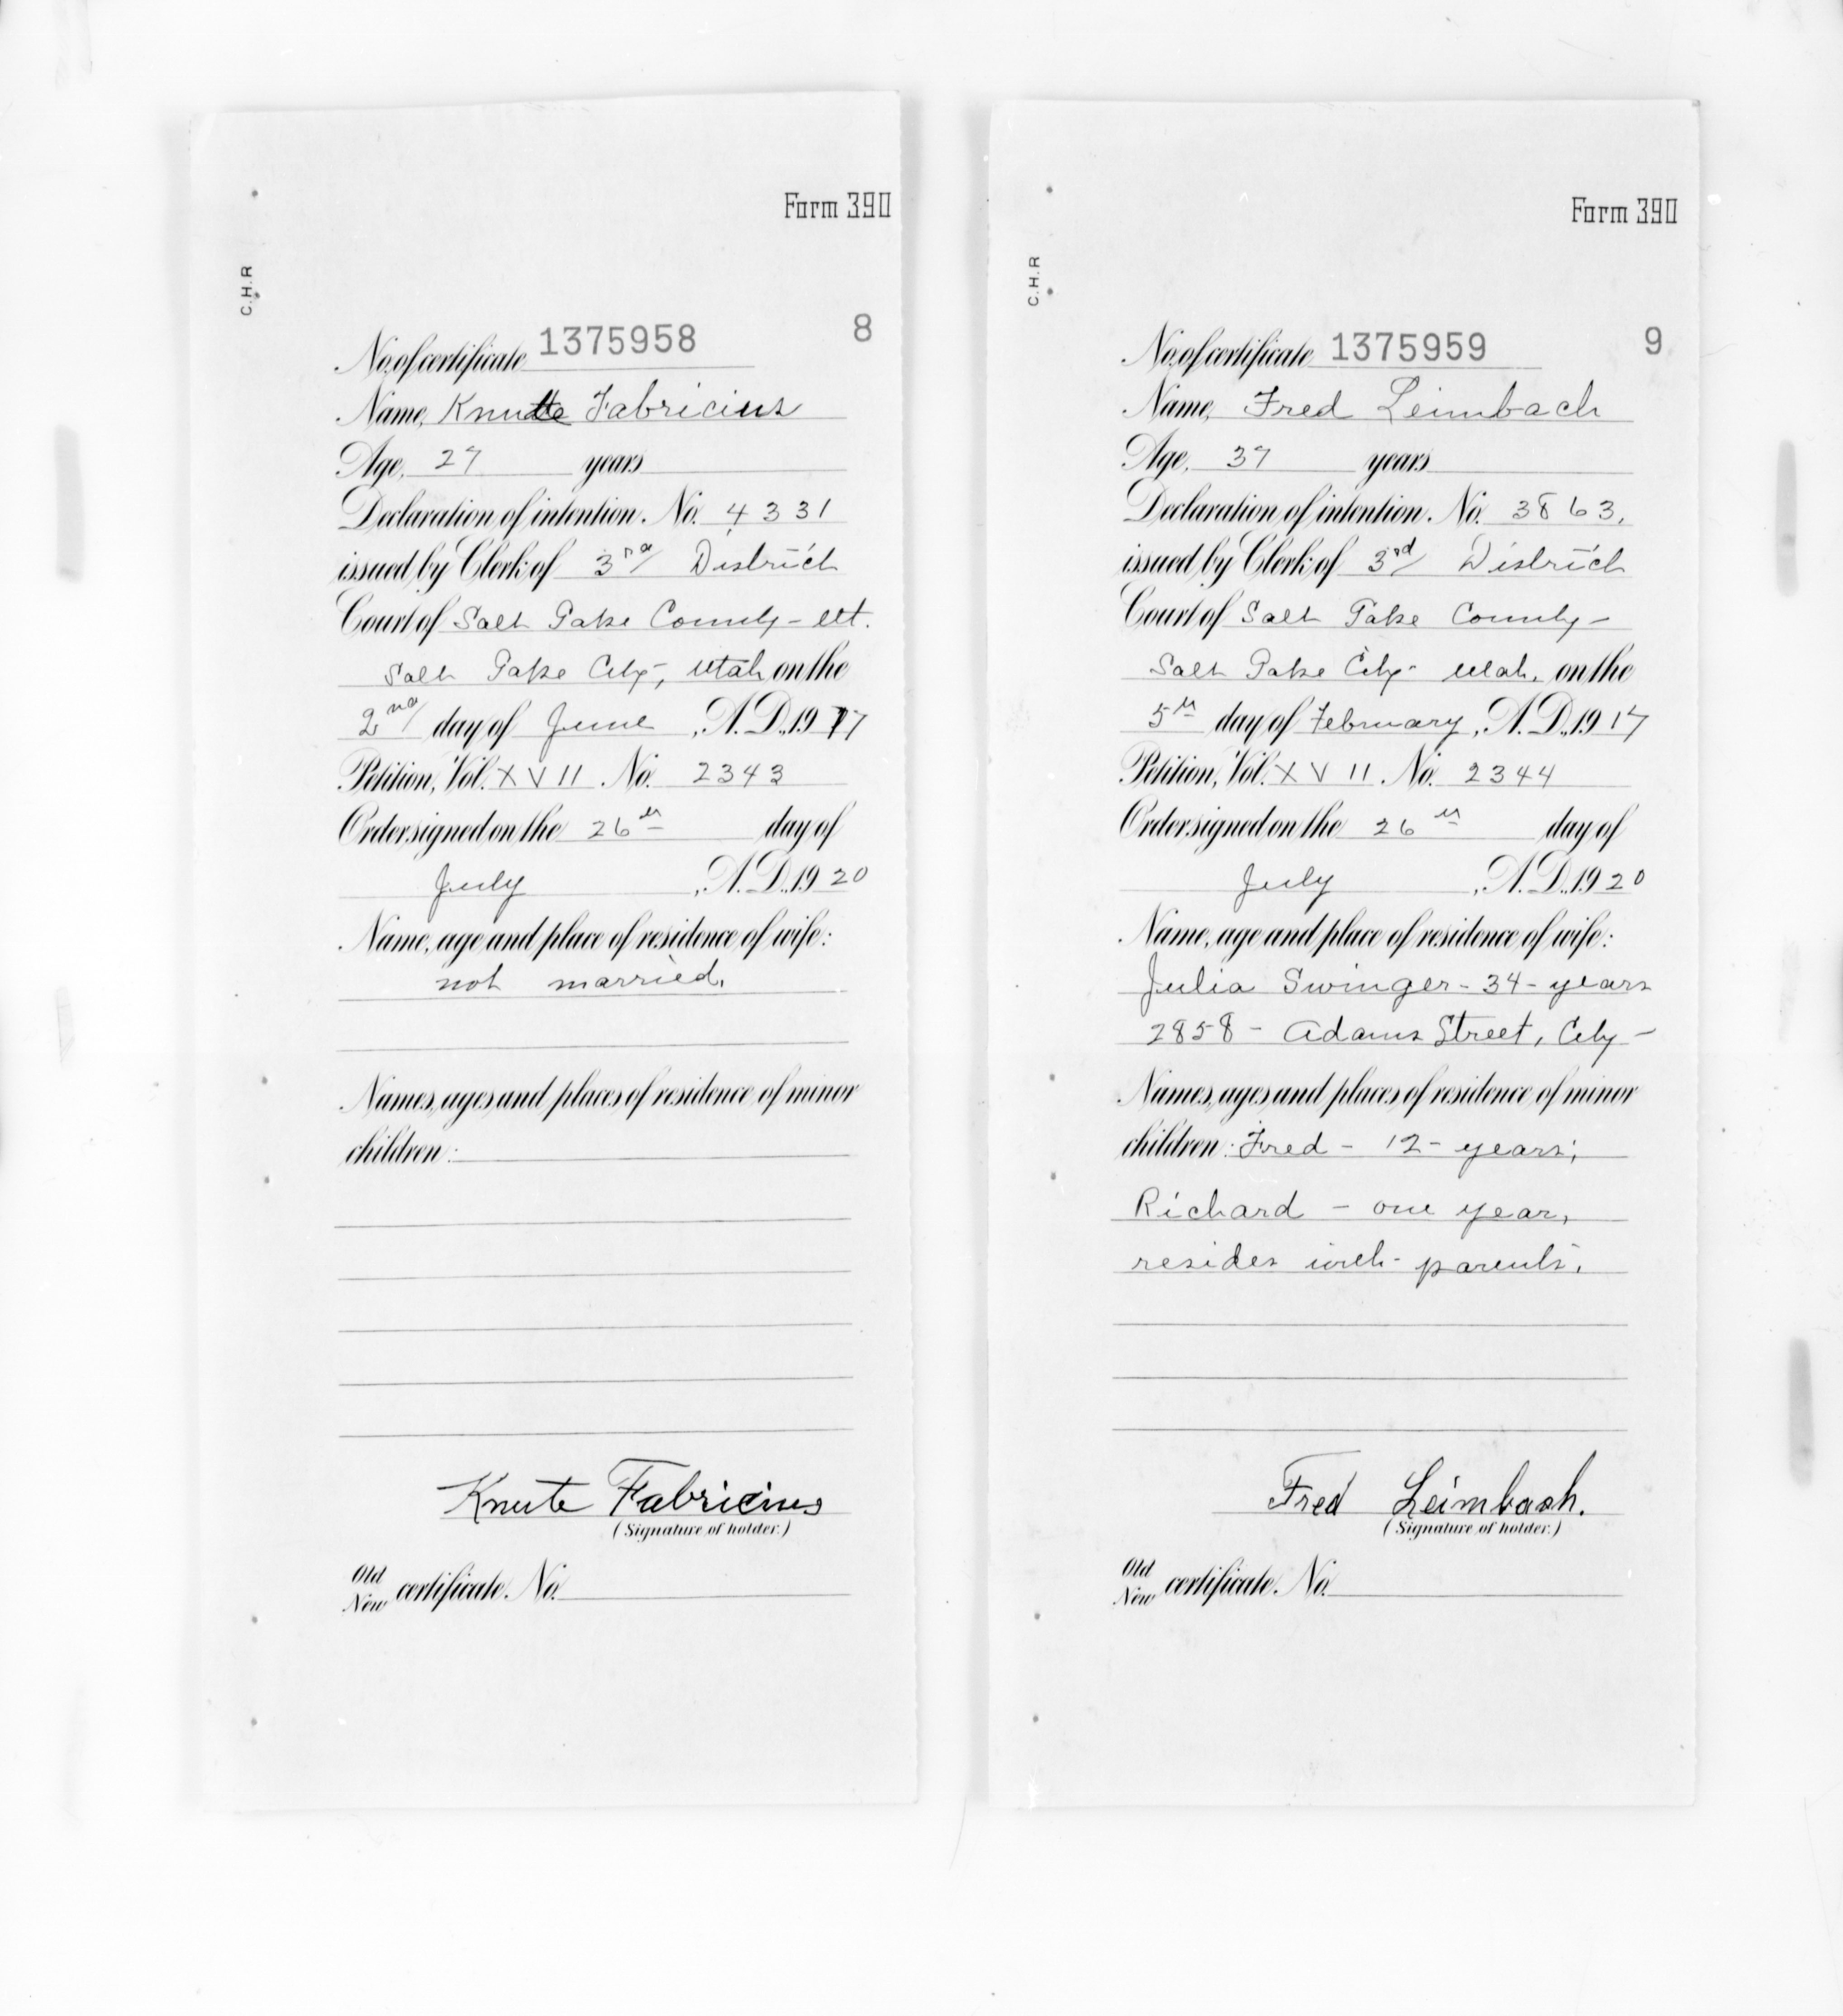 Form 390
C.H.R
No. of certificate 1375958 8
Name, Knute Fabricius
Age, 27 years
Declaration of intention. No. 4331
issued by Clerk of 3rd District
Court of Salt Lake County - Ut.
Salt Lake City, Utah on the
2nd day of June, A.D. 1917
Petition, Vol. XVII. No. 2343
Order signed on the 26th day of
July, A.D. 1920
Name, age and place of residence of wife:
not married.
Names, ages and places of residence of minor
children:
Knute Fabricius
(Signature of holder.)
Old
New certificate. No.
Form 390
C.H.R
No. of certificate 1375959 9
Name, Fred Leimbach
Age, 37 years
Declaration of intention. No. 3863.
issued by Clerk of 3rd District
Court of Salt Lake County -
Salt Lake City - Utah. on the
5th day of February, A.D. 1917
Petition, Vol. XVII. No. 2344
Order signed on the 26th day of
July, A.D. 1920
Name, age and place of residence of wife:
Julia Swinger - 34 - years
2858 - Adams Street, City -
Names, ages and places of residence of minor
children: Fred - 12 - years;
Richard - one year,
resides with - parents.
Fred Leimbach.
(Signature of holder.)
Old
New certificate. No.